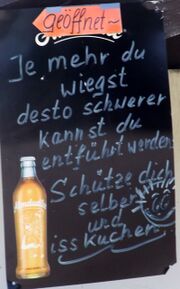 geöffnet~
Je mehr du
wiegst
desto schwerer
kannst du
entführt werden
Schütze dich
selber
und
iss Kuchen